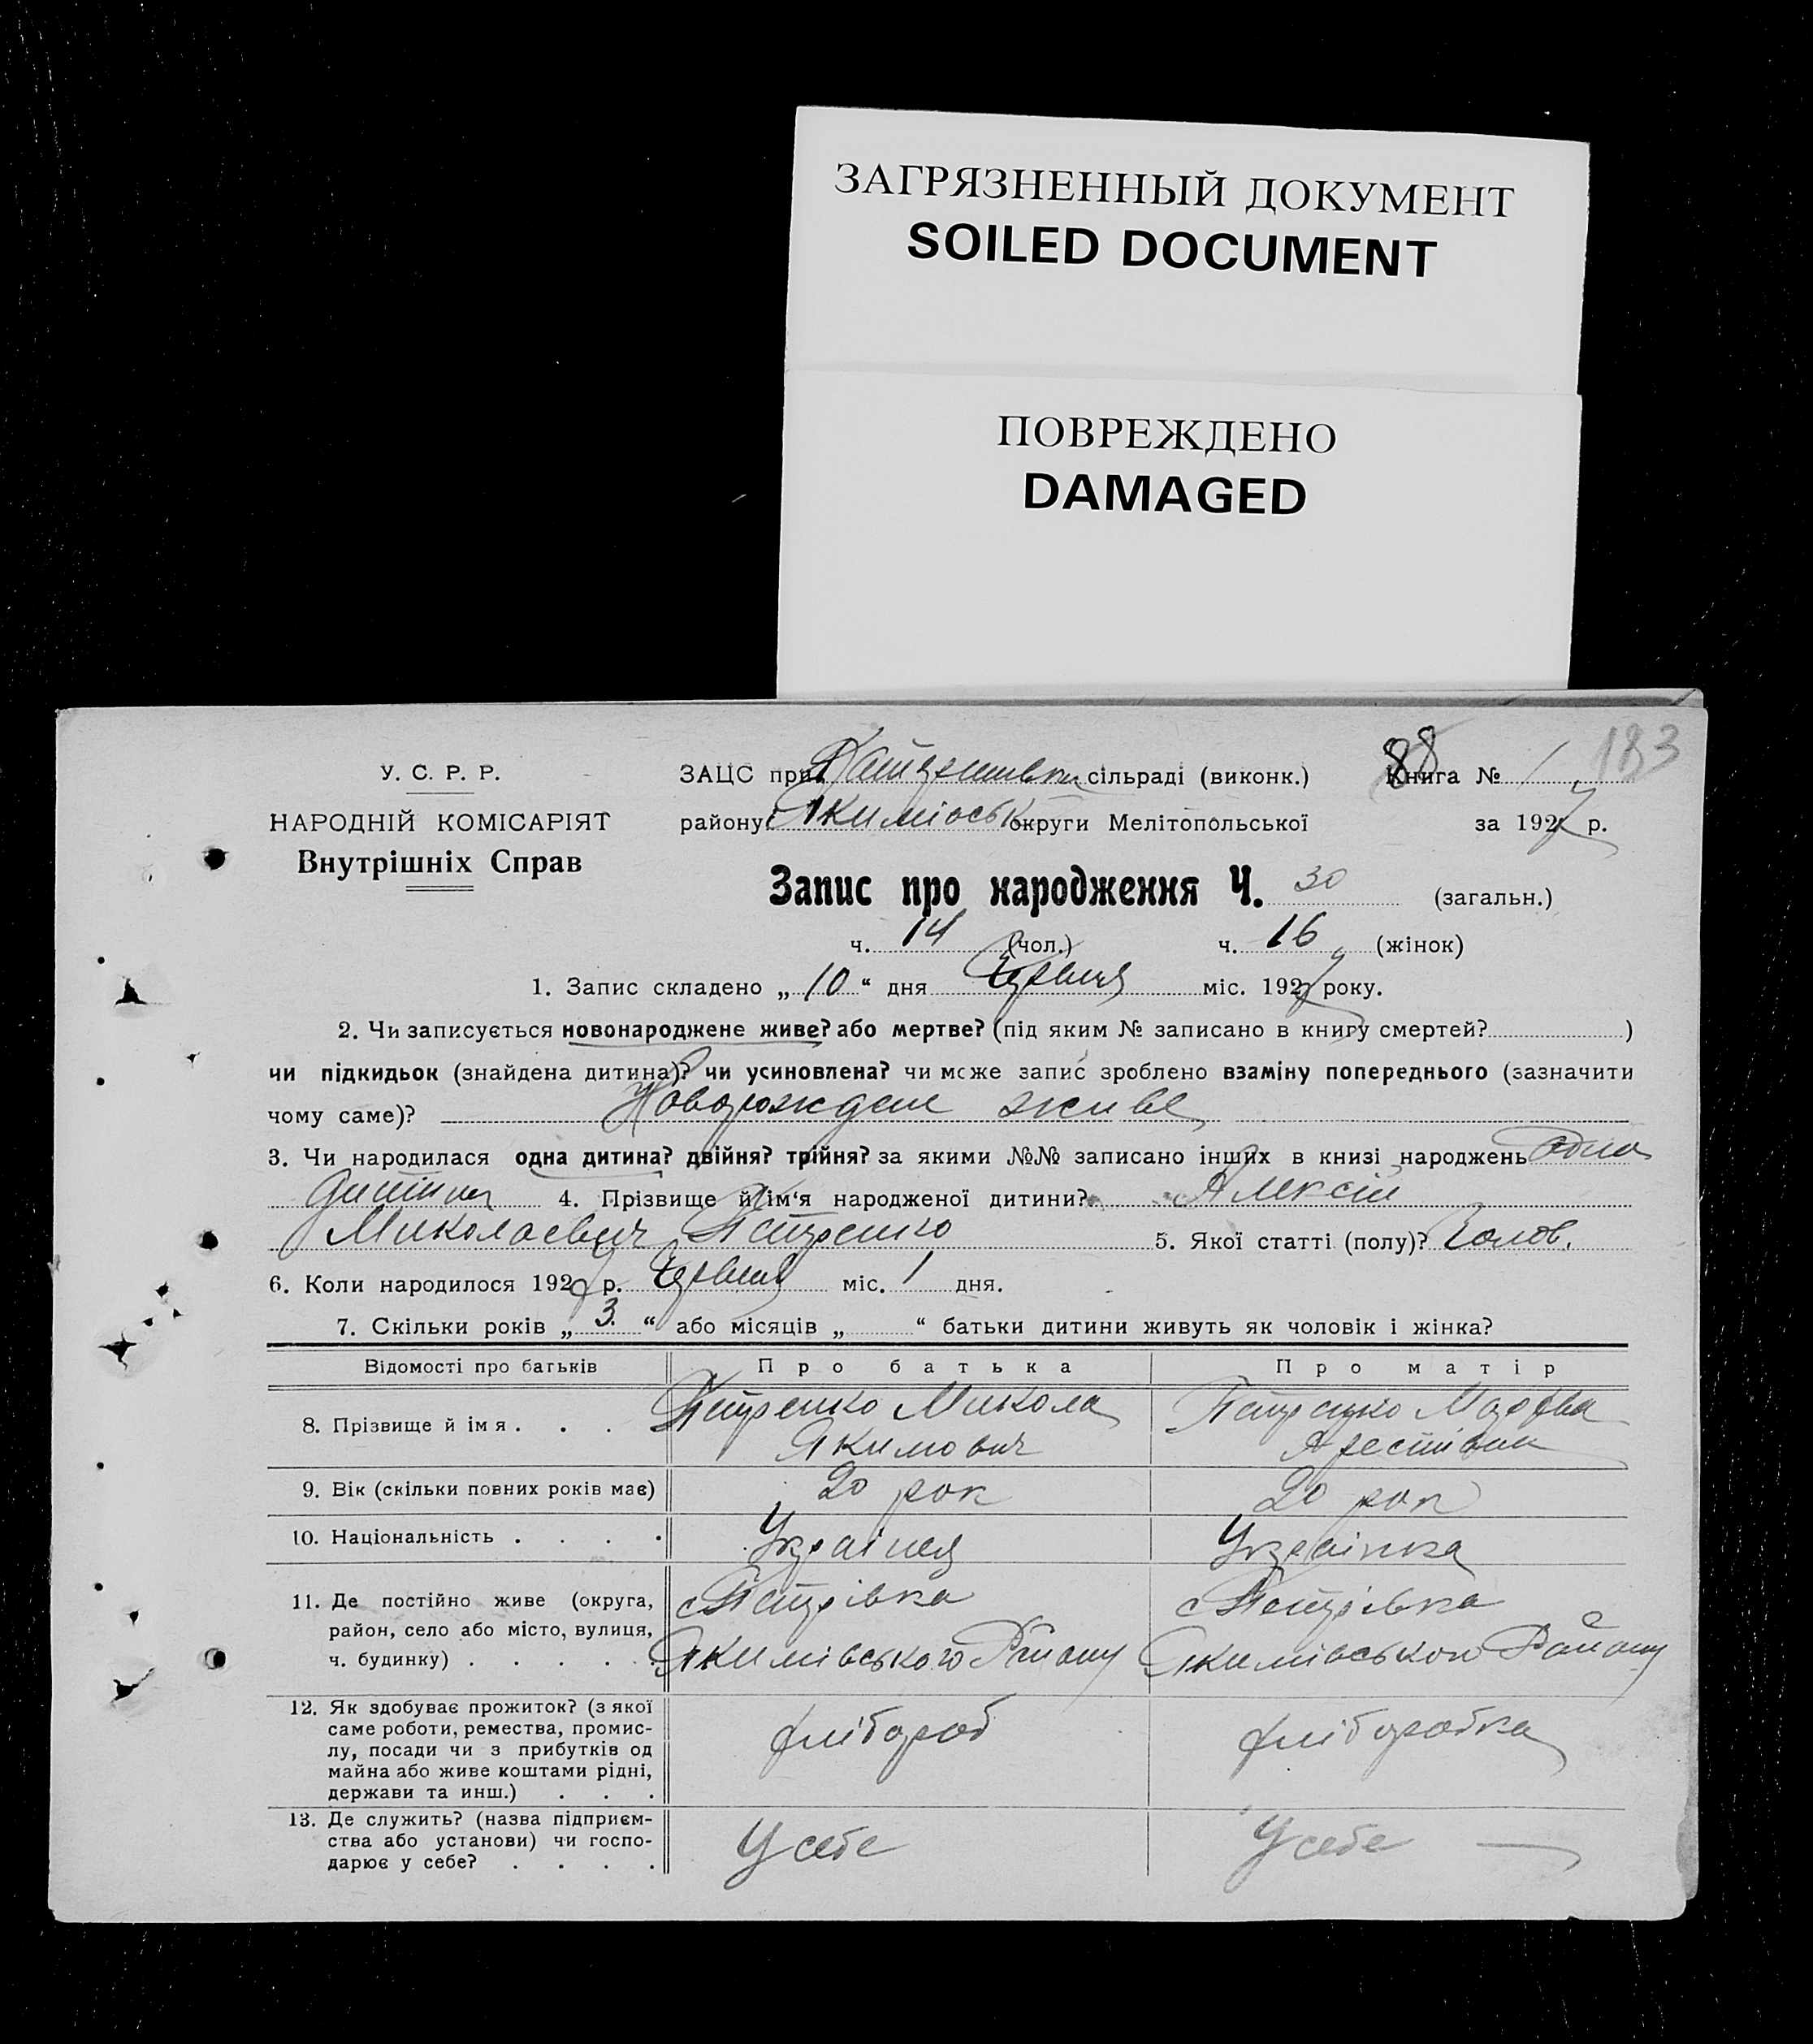 ЗАГРЯЗНЕННЫЙ ДОКУМЕНТ
SOILED DOCUMENT
ПОВРЕЖДЕНО
DAMAGED
88 183
У. С. Р. Р.
НАРОДНІЙ КОМІСАРІЯТ
Внутрішніх Справ
ЗАЦС при сільраді (виконк.) Книга № 1
району Якимівськ округи Мелітопольської за 1927 р.
Запис про народження Ч. 30 (загальн.)
ч. 14 (чол.) ч. 16 (жінок)
1. Запис складено „ 10 “ дня Червня міс. 1927 року.
2. Чи записується новонароджене живе? або мертве? (під яким № записано в книгу смертей? )
чи підкидьок (знайдена дитина)? чи усиновлена? чи може запис зроблено взаміну попереднього (зазначити
чому саме)? Новорождене живе
3. Чи народилася одна дитина? двійня? трійня? за якими №№ записано інших в книзі народжень одна
дитина 4. Прізвище й ім‘я народженої дитини? Алексій
Миколаевич Петренко 5. Якої статті (полу)? Чолов.
6. Коли народилося 1927 р. Червня міс. 1 дня.
7. Скільки років „ 3 “ або місяців „ “ батьки дитини живуть як чоловік і жінка?
Відомості про батьків Про батька Про матір
8. Прізвище й імя . . . Петренко Микола Якимович Петренко Марфа
9. Вік (скільки повних років має) 20 рок 20 рок
10. Національність . . . . Українец Українка
11. Де постійно живе (округа, с Петрівка с Петрівка
район, село або місто, вулиця,
ч. будинку) . . . . . Якимівського Району Якимівського Району
12. Як здобуває прожиток? (з якої
саме роботи, ремества, промис-
лу, посади чи з прибутків од хлібороб хліборобка
майна або живе коштами рідні,
держави та инш.) . . .
13. Де служить? (назва підприєм-
ства або установи) чи госпо- У себе У себе
дарює у себе? . . . .